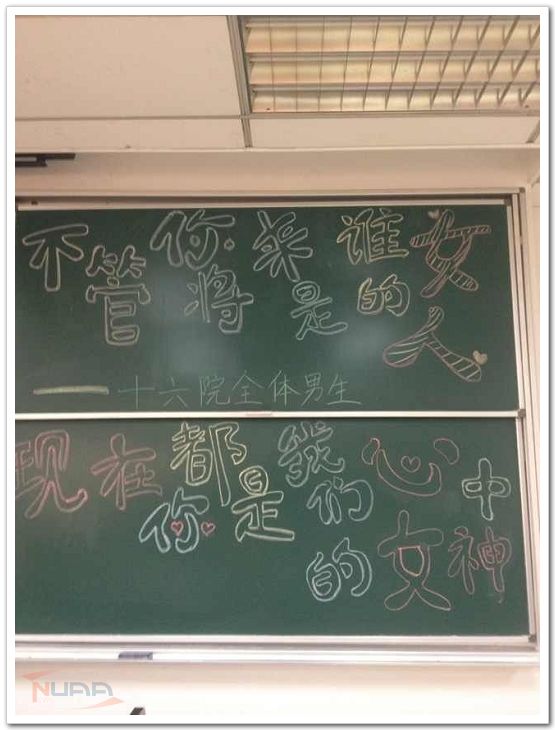 不管你将来是谁的女人
——十六院全体男生
现在你都是我们心中的女神
NUAA